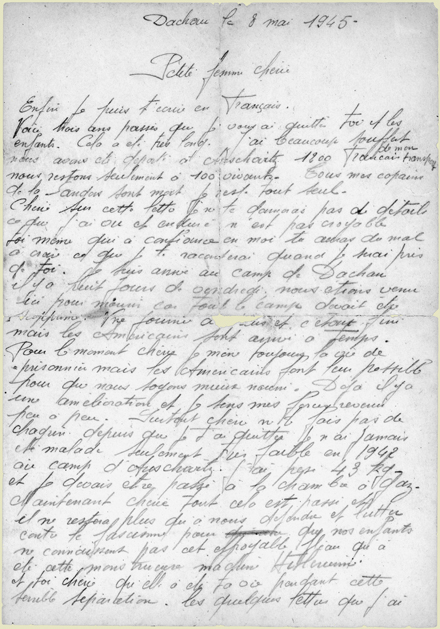 Dachau le 8 mai 1945-
Petite femme chérie
Enfin je puis t'écrire en Français.
Voici trois ans passés que je vous ai quitté toi et les
enfants. Cela a été très long. J'ai beaucoup souffert
de mon
nous avons été déporté à 1800 Français transport
nous restons seulement à 100 vivants. Tous mes copains
de la sont mort je rest tout seul.
Cherie sur cette lettre je ne te donnerai pas de détails
ce que j'ai vu et enduré n est pas croyable
toi même qui à confiance en moi tu auras du mal
à croire ce que je te raconterai quand je serai près
de toi. Je suis arrivé au camp de Dachau
il y a huit jours de vendredi, nous étions venu
ici pour mourir car tout le camp devait être
supprimé Une journée de plus et c'était fini
mais les Américains sont arrivé à temps.
Pour le moment cherie je mène toujours la vie de
prisonnier mais les Américains font leur possible
pour que nous soyons mieux nourri. Déjà il y a
une amélioration et je sens mes forces revenir
peu à peu. Surtout cherie ne te fais pas de
chagrin depuis que je t'ai quitté je n'ai jamais
été malade seulement très faible en 1942
au camp d' J'ai pesé 43 kg-
et je devais être passé à la chambre à gaz-
Maintenant cherie tout cela est passé et
il ne restera plus qu'à nous défendre et lutter
contre le fascisme pour que nos enfants
ne connaissent pas cet effroyable fléau qu'a
été cette machine Hitlerienne
et toi cherie qu'elle a été ta vie pendant cette
terrible séparation. les quelques lettres que j'ai